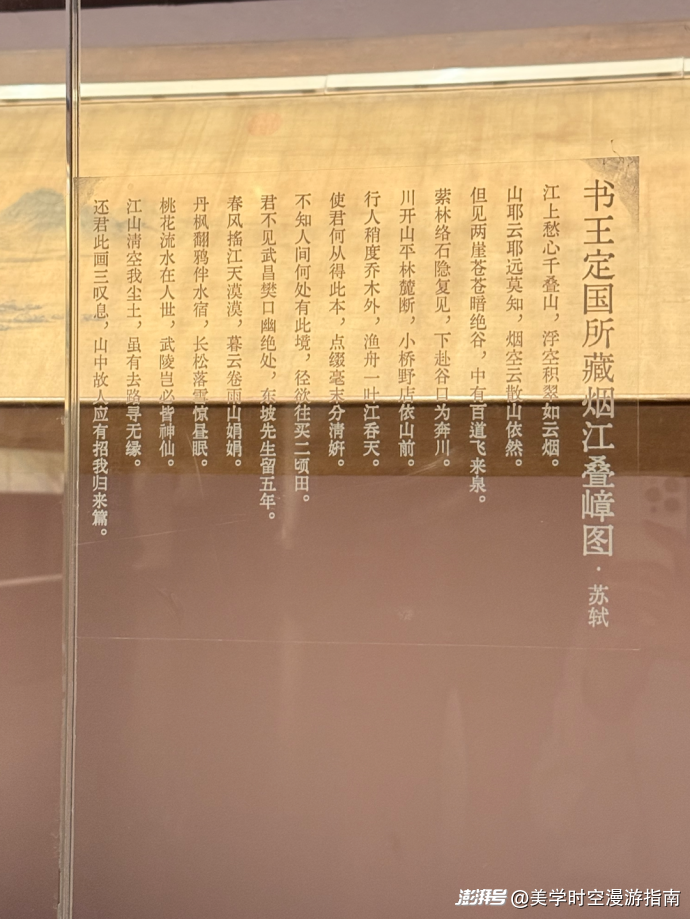 书王定国所藏烟江叠嶂图·苏轼
江上愁心千叠山，浮空积翠如云烟。
山耶云耶远莫知，烟空云散山依然。
但见两崖苍苍暗绝谷，中有百道飞来泉。
萦林络石隐复见，下赴谷口为奔川。
川开山平林麓断，小桥野店依山前。
行人稍度乔木外，渔舟一叶江吞天。
使君何从得此本，点缀毫末分清妍。
不知人间何处有此境，径欲往买二顷田。
君不见武昌樊口幽绝处，东坡先生留五年。
春风摇江天漠漠，暮云卷雨山娟娟。
丹枫翻鸦伴水宿，长松落雪惊昼眠。
桃花流水在人世，武陵岂必皆神仙。
江山清空我尘土，虽有去路寻无缘。
还君此画三叹息，山中故人应有招我归来篇。
澎湃号 @美学时空漫游指南